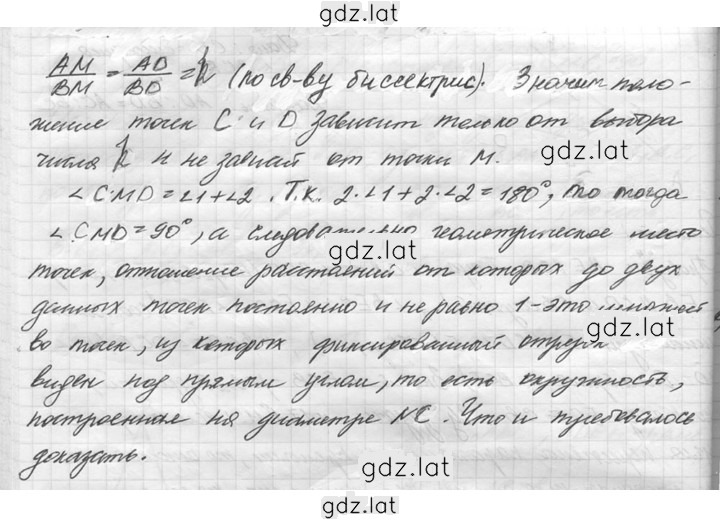 gdz.lat
AM/BM = AD/BD = k (по св-ву биссектрис). Значит поло-
жение точек C и D зависит только от выбора
числа k и не завсит от точки M.
gdz.lat
∠CMD = ∠1+∠2. Т.к. 2·∠1+2·∠2=180°, то тогда
∠CMD=90°, а следовательно геометрическое место
gdz.lat
точек, отношение расстояний от которых до двух
данных точек постоянно и не равно 1-это множест
gdz.lat
во точек, из которых фиксированный отрезок
виден под прямым углом, то есть окружность,
построенная на диаметре
. Что и требовалось
доказать.
gdz.lat
gdz.lat